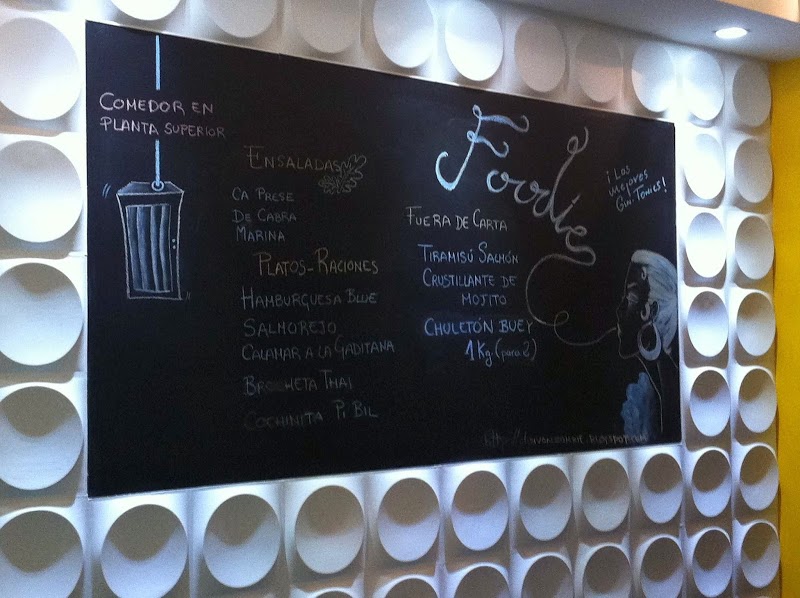 COMEDOR EN
PLANTA SUPERIOR
ENSALADAS
CA PRESE
DE CABRA
MARINA
PLATOS-RACIONES
HAMBURGUESA BLUE
SALMOREJO
CALAMAR A LA GADITANA
BROCHETA THAI
COCHINITA PI BIL
Foodie
FUERA DE CARTA
TIRAMISÚ SACHÓN
CRUSTILLANTE DE
MOJITO
CHULETÓN BUEY
1 Kg. (para 2)
¡Los
mejores
Gin-Tonics!